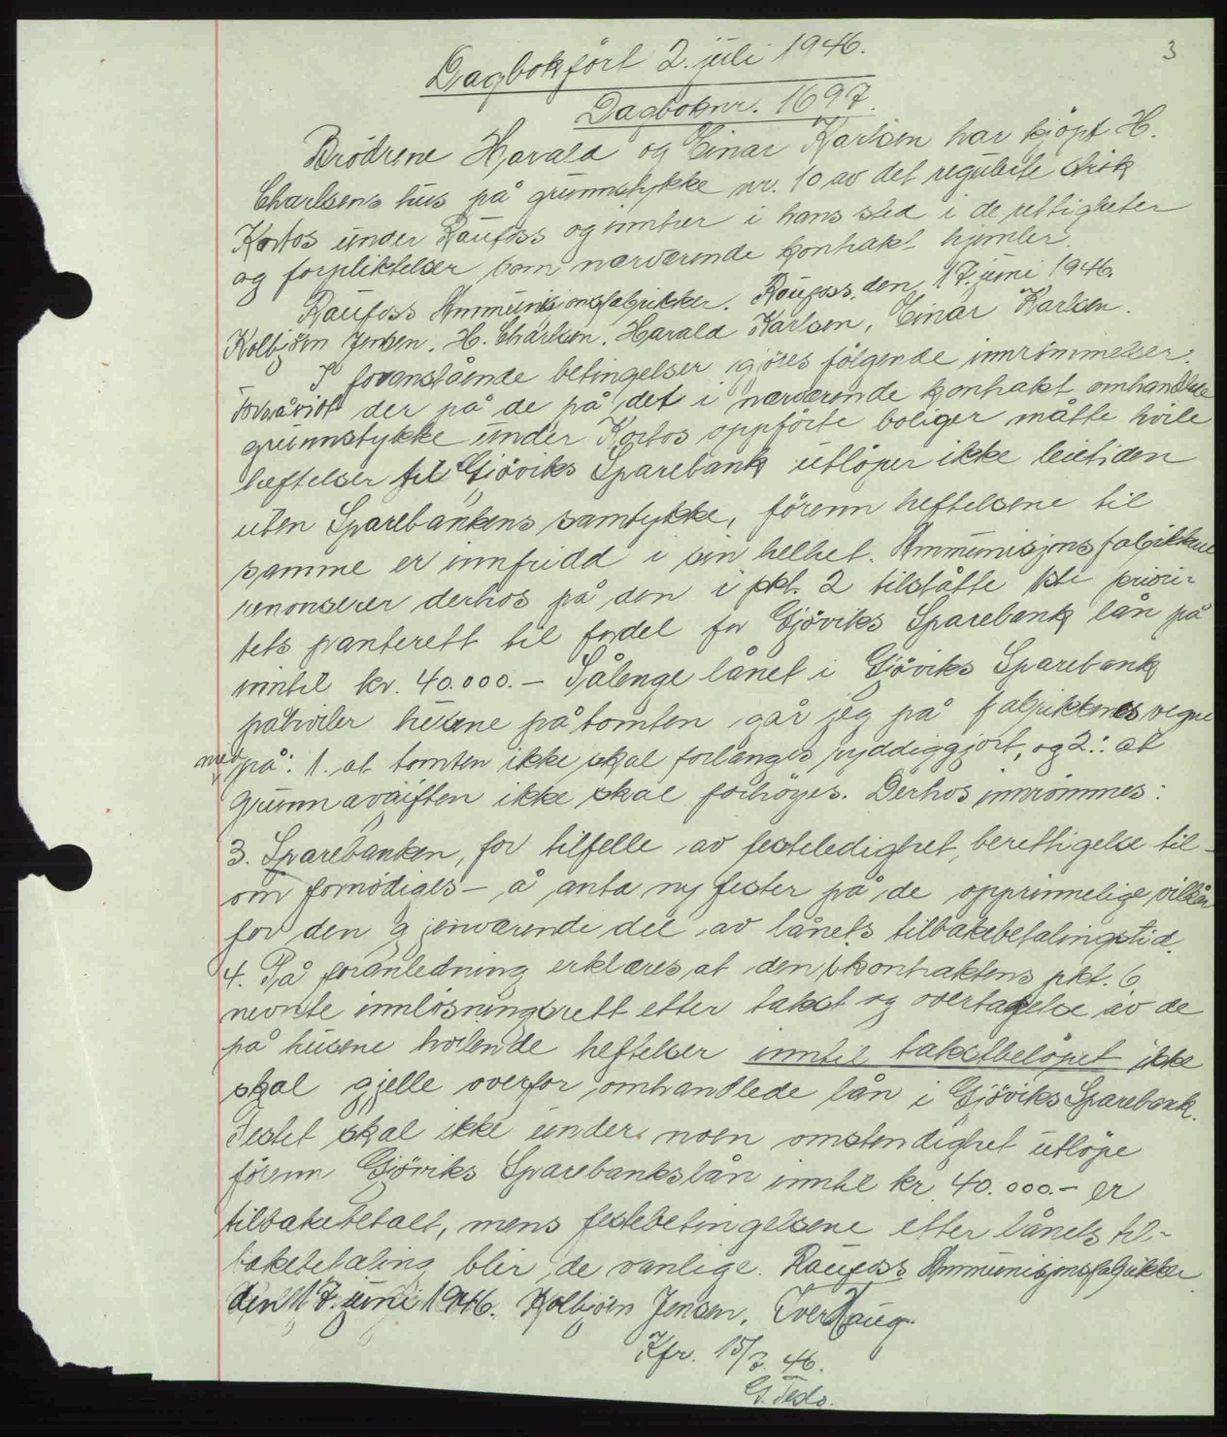 3
Dagbokført 2. juli 1946.
Dagboknr. 1697.
Brødrene Harald og Einar Karlsen har kjøpt H.
Charlsens hus på grunnstykke nr. 10 av det regulerte strøk
Kortos under Raufoss og inntrer i hans sted i de rettigheter
og forpliktelser som nærværende kontrakt hjemler.
Raufoss Ammunisjonsfabrikker. Raufoss, den 17. juni 1946.
Kolbjørn Jensen. H. Charlsen. Harald Karlsen, Einar Karlsen.
I foranstående betingelser gjøres følgende innrømmelser:
Forsåvidt der på de på det i nærværende kontrakt omhandlede
grunnstykke under Kortos oppførte boliger måtte hvile
heftelser til Gjøviks Sparebank utløper ikke leietiden
uten Sparebankens samtykke, førenn heftelsene til
samme er innfridd i sin helhet. Ammunisjonsfabrikkene
renonserer derhos på den i pkt. 2 tilståtte 1ste priori-
tets panterett til fordel for Gjøviks Sparebank lån på
inntil kr. 40.000.- Sålenge lånet i Gjøviks Sparebank
påhviler husene på tomten går jeg på fabrikkenes vegne
med på: 1. at tomten ikke skal forlanges ryddiggjort, og 2.: at
grunnavgiften ikke skal forhøyes. Derhos innrømmes:
3. Sparebanken, for tilfelle av festeledighet, berettigelse til -
om fornødiges - å anta ny fester på de opprinnelige vilkår
for den gjenværende del av lånets tilbakebetalingstid.
4. På foranledning erklæres, at den i kontraktens pkt. 6
nevnte innløsningsrett etter takst og overtagelse av de
på husene hvilende heftelser inntil takstbeløpet ikke
skal gjelle overfor omhandlede lån i Gjøviks Sparebank.
Festet skal ikke under noen omstendighet utløpe
førenn Gjøviks Sparebanks lån inntil kr. 40.000.- er
tilbakebetalt, mens festebetingelsene etter lånets til-
bakebetaling blir de vanlige. Raufoss Ammunisjonsfabrikker
den 17. juni 1946. Kolbjørn Jensen, Iver Haug.
Kfr. 15/7. 46.